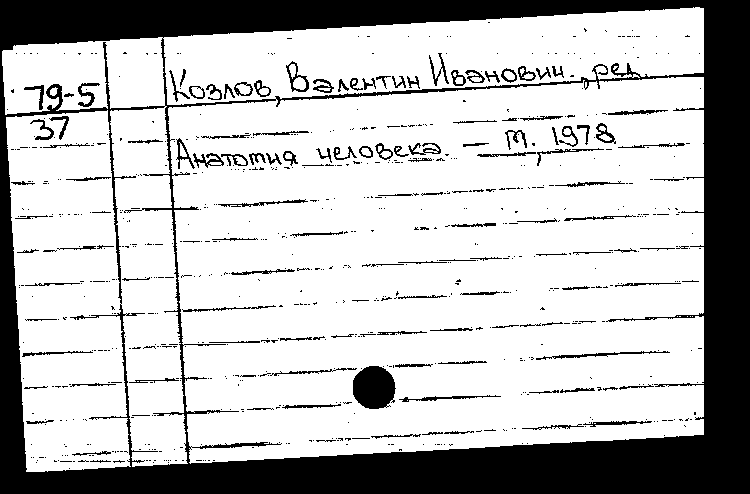 79-5
37
Козлов, Валентин Иванович., ред.
Анатомия человека. — М., 1978